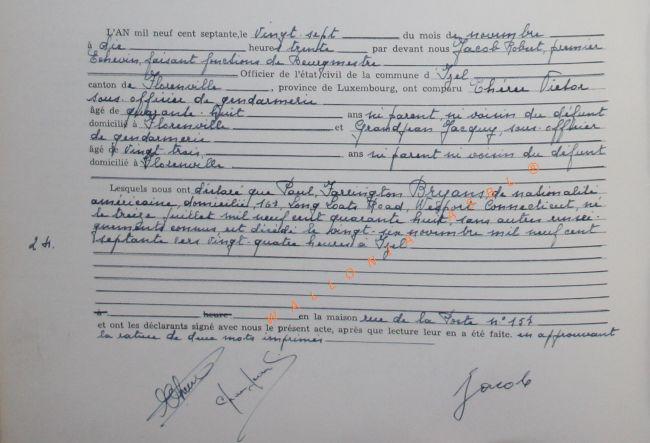 L'AN mil neuf cent septante, le vingt sept du mois de novembre
à dix heures trente par devant nous Jacob Robert, premier
Echevin, faisant fonctions de Bourgmestre
Officier de l'état civil de la commune d'Izel
canton de Florenville, province de Luxembourg, ont comparu Théree Victor
sous-officier de gendarmerie
âgé de quarante huit ans ni parent ni voisin du défunt
domicilié à Florenville et Grandjean Jacquy, sous-officier
de gendarmerie
âgé de vingt trois ans ni parent ni voisin du défunt
domicilié à Florenville
Lesquels nous ont déclaré que Paul, Farrington Bryans, de nationalité
américaine, domicilié 157, Long Loats Road, Wesport Connecticut, né
le treize juillet mil neuf cent quarante huit, sans autres rensei-
gnements connus, est décédé le vingt-six novembre mil neuf cent
2 h. septante vers vingt-quatre heures à Izel
à heure en la maison rue de la Poste n° 154
et ont les déclarants signé avec nous le présent acte, après que lecture leur en a été faite. en approuvant
la rature de deux mots imprimés
Jacob
WALLONIA ASBL ®